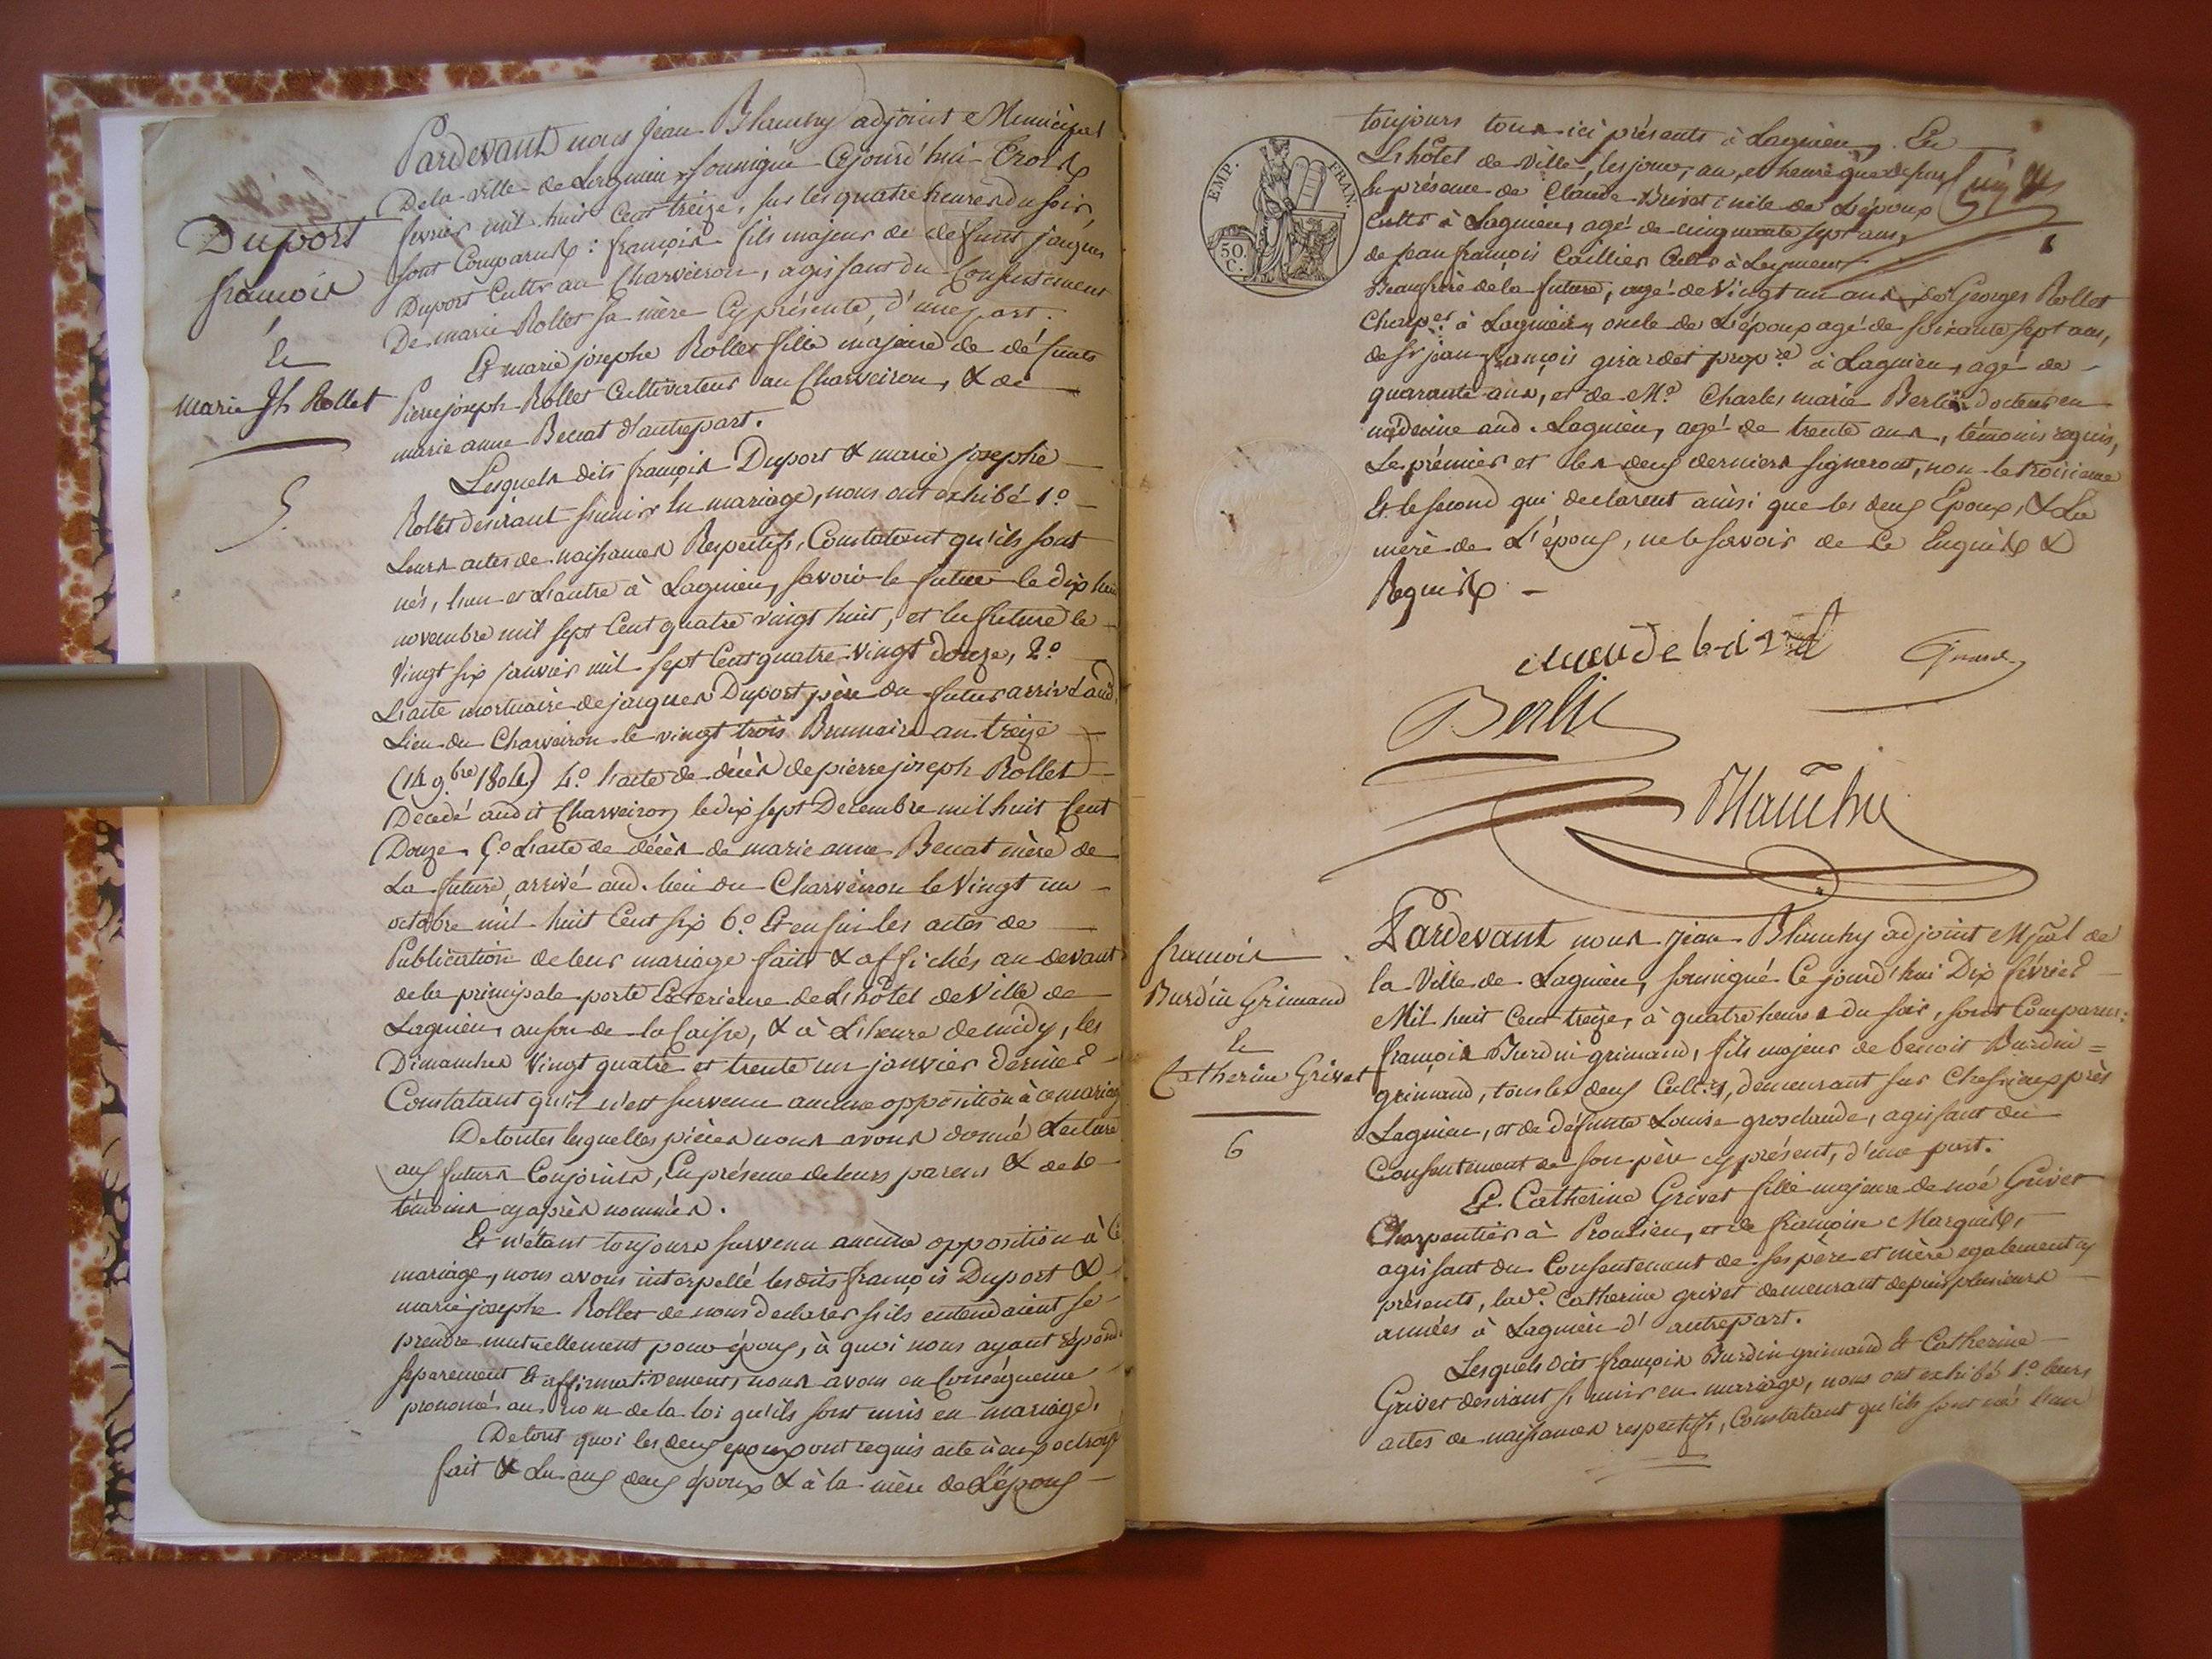 Pardevant nous Jean Blanchy adjoint Municipal
De la ville de Lagnieu soussigné Cejourd'hui trois
fevrier mil huit Cent treize, sur les quatre heures du soir,
sont Comparus : françois fils majeur de défunt jacques
Duport Cultr au Charveiron, agissant du Consentement
De marie Rollet sa mère Cy présente, d'une part.
Et marie josephe Rollet fille majeure de défunts
Pierre joseph Rollet Cultivateur au Charveiron, & de
marie anne Benat d'autre part.
Duport
françois
&
Marie Jh Rollet
5.
Lesquels dits françois Duport & marie josephe
Rollet desirant s'unir en mariage, nous ont exhibé 1.º
Leurs actes de naissances Respectifs, Constatant qu'ils sont
nés, l'un et L'autre à Lagnieu, savoir le futur le dix huit
novembre mil sept Cent quatre vingt huit, et la future le
Vingt six janvier mil sept Cent quatre vingt douze, 2.º
L'acte mortuaire de jacques Duport père du futur arrivé aud.
Lieu du Charveiron le vingt trois Brumaire an treize
(14 9.bre 1804) 4.º l'acte de décès de pierre joseph Rollet
Décédé audit Charveiron le dix sept Decembre mil huit Cent
Douze, 5.º L'acte de décès de marie anne Benat mère de
La future, arrivé aud. lieu du Charveiron le Vingt un
octobre mil huit Cent six 6.º Et enfin les actes de
Publication de leur mariage faits & affichés au devant
de la principale porte Exterieure de L'hôtel de Ville de
Lagnieu, au son de la Caisse, & à L'heure de midy, les
Dimanches Vingt quatre et trente un janvier dernier
Constatant qu'il n'est survenu aucune opposition à ce mariage
De toutes lesquelles pièces nous avons donné Lecture
aux futurs Conjoints, En présence de leurs parens & de
témoins cy après nommés.
Et n'étant toujours survenu aucune opposition à Ce
mariage, nous avons interpellé lesdits françois Duport &
marie josephe Rollet de nous declarer s'ils entendaient se
prendre mutuellement pour époux, à quoi nous ayant répondu
séparement & affirmativement, nous avons en Conséquence
prononcé au nom de la loi qu'ils sont unis en mariage.
De tout quoi les deux epoux ont requis acte à eux octroyé
fait & Lu aux deux époux & à la mère de L'époux
EMP. FRAN.
50 C.
toujours tous ici présents à Lagnieu, En
L'hôtel de Ville, les jour, an, et heure que dessus
En présence de Claude Brivet oncle de L'époux
Cultr à Lagnieu, agé de cinquante sept ans,
de jean françois Caillier Cultr à Leyment
Beaufrère de la future, agé de Vingt un ans, de Georges Rollet
Charp.er à Lagnieu, oncle de L'époux agé de soixante sept ans,
de Sr jean françois girardet prop.re à Lagnieu, agé de
quarante ans, et de M.e Charles marie Berlie docteur en
médecine aud. Lagnieu, agé de trente ans, témoins requis,
Le prémier et les deux derniers signeront, non le troisieme
Et le second qui declarent ainsi que les deux Epoux, & La
mère de L'époux, ne le savoir de Ce Enquis &
Requis
Berlie
Blanchy
françois
Burdin Grimaud
&
Catherine Grivet
6
Pardevant nous jean Blanchy adjoint Mpal de
la Ville de Lagnieu, soussigné Ce jourd'hui Dix février
Mil huit Cent treize, à quatre heures du soir, sont Comparus:
françois Burdin grimaud, fils majeur de benoit Burdin=
grimaud, tous les deux Cult.rs, demeurant sur Chessieux près
Lagnieu, et de défunte Louise grosclaude, agissant du
Consentement de son père cy présent, d'une part.
Et Catherine Grivet fille majeure de noé Grivet
Charpentier à Proulieu, et de françoise Marguit,
agissant du Consentement de ses père et mère egalement cy
présents, lad.e Catherine grivet demeurant depuis plusieurs
années à Lagnieu d'autre part.
Lesquels dits françois Burdin grimaud & Catherine
Grivet desirant s'unir en mariage, nous ont exhibé 1.º leurs
actes de naissances respectifs, Constatant qu'ils sont nés l'un